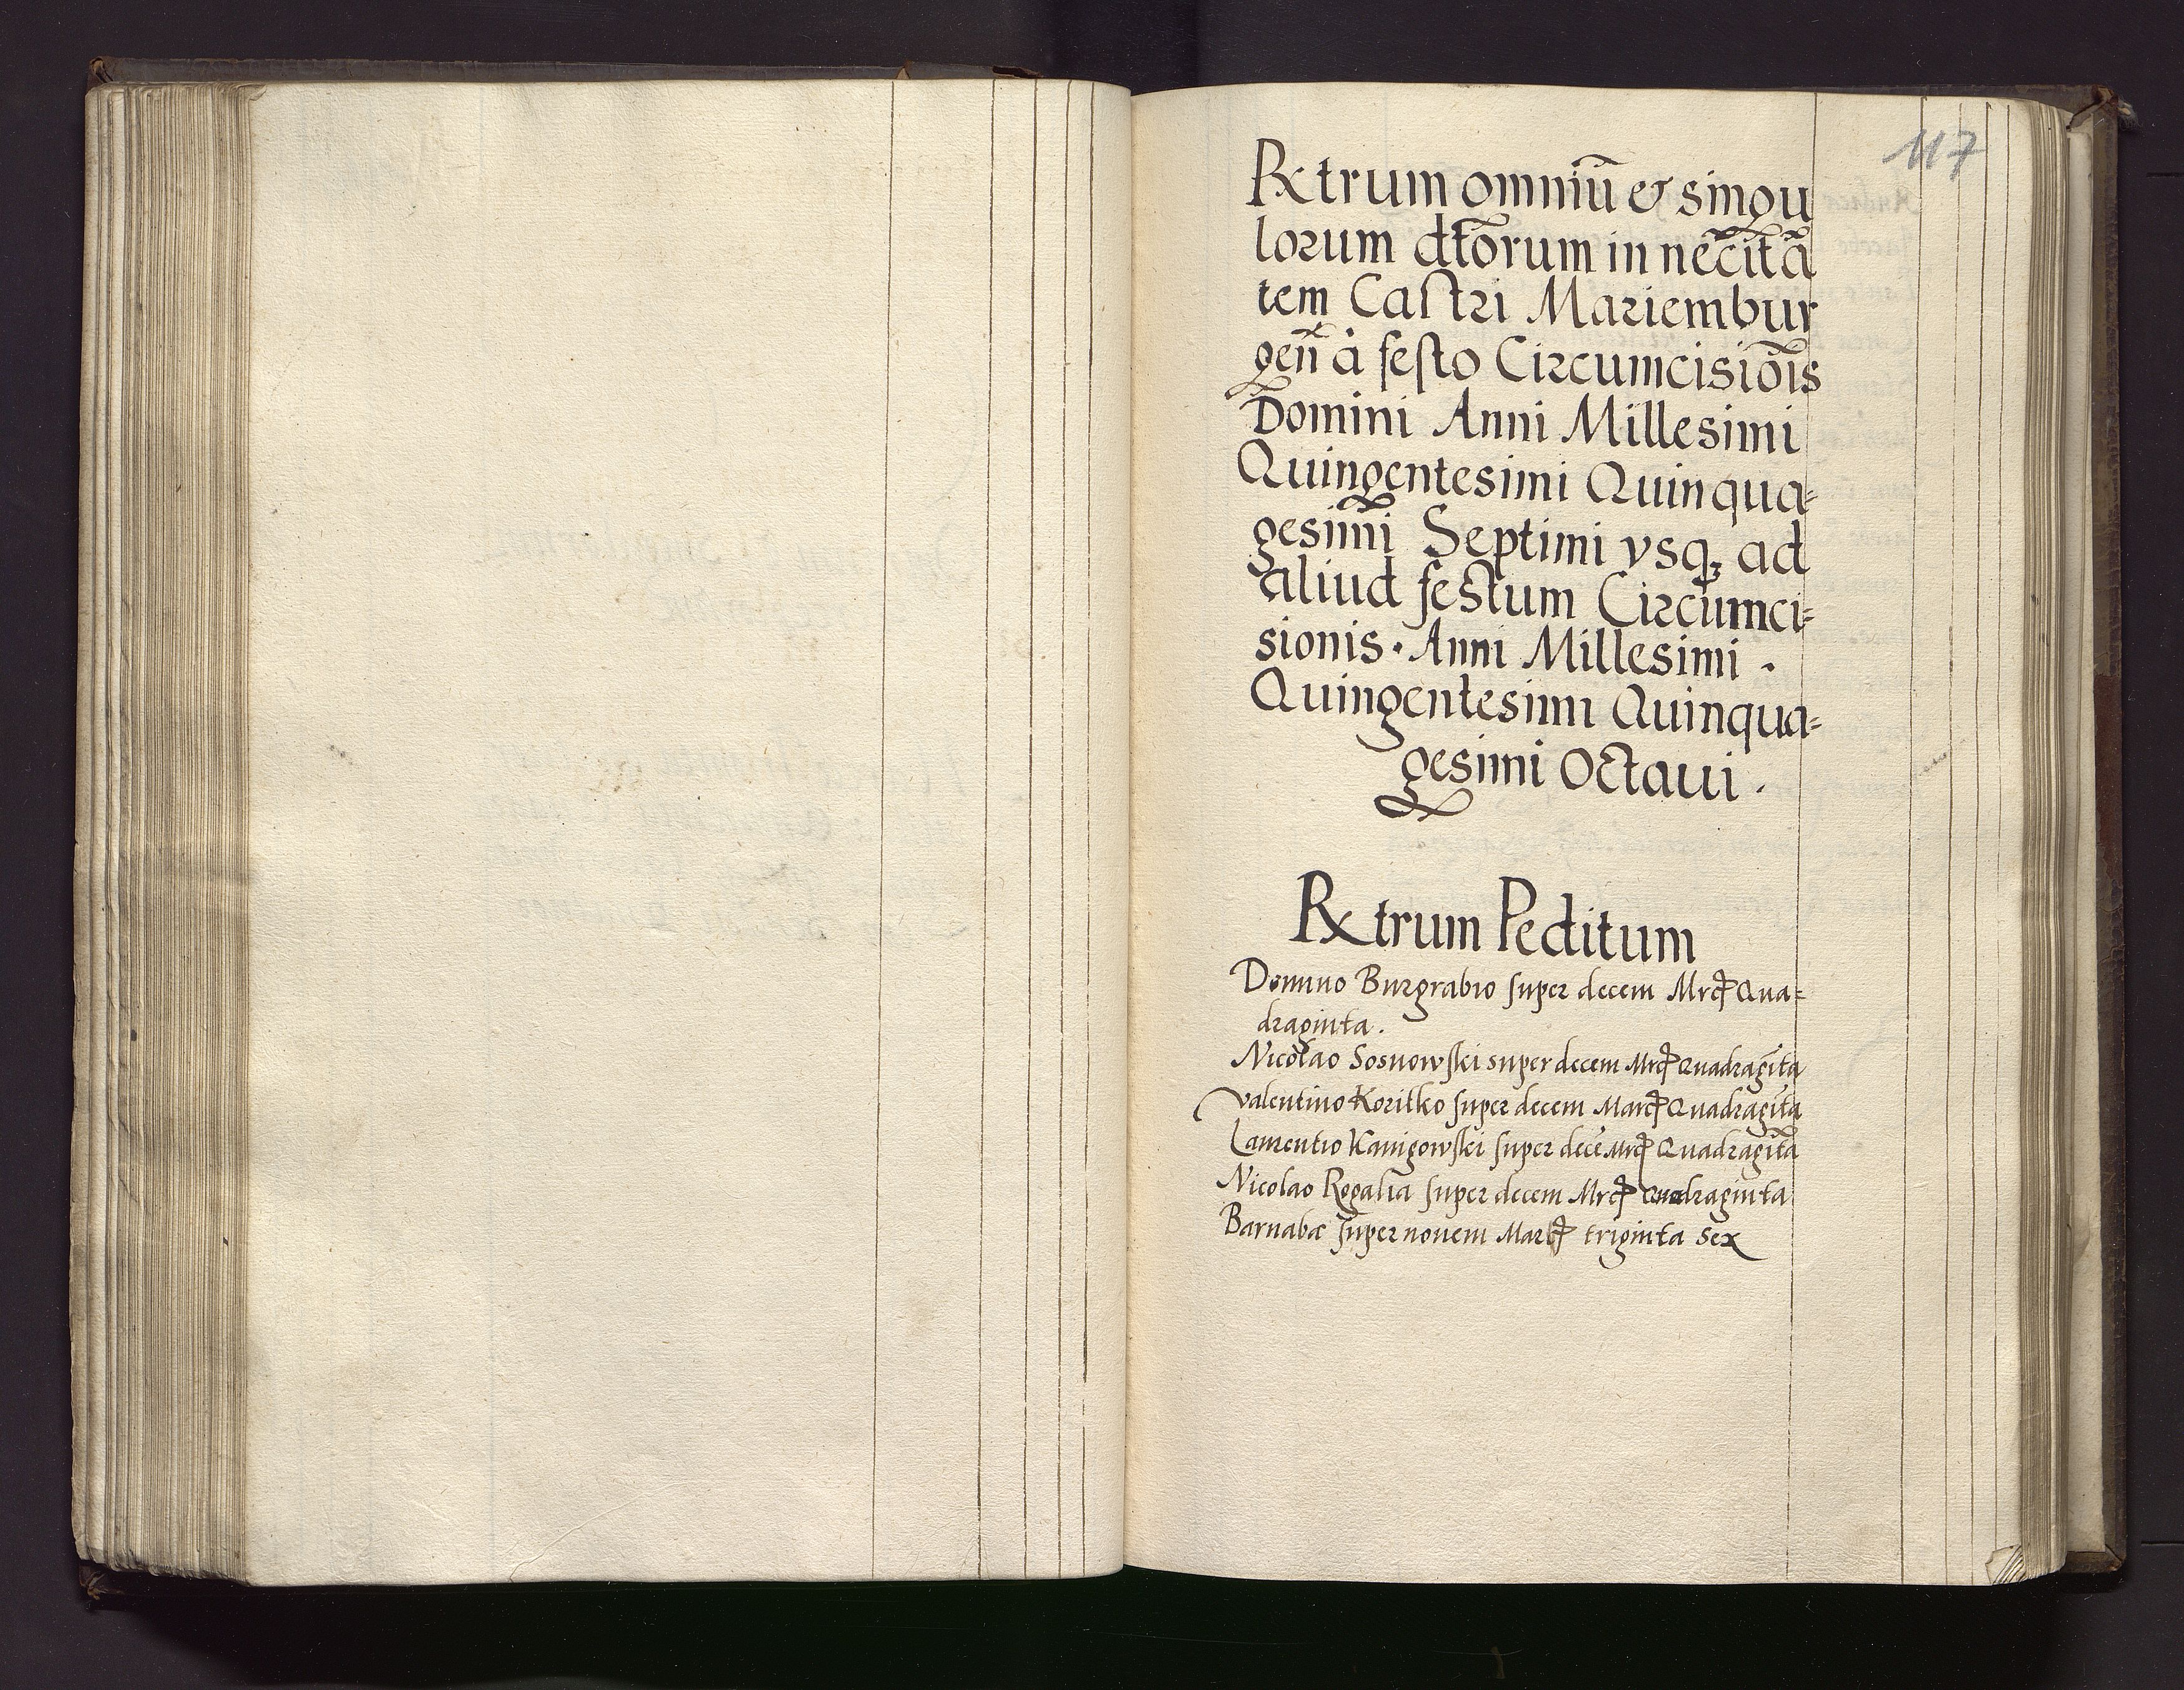 117
Rx̄trum omniū & singu
lorum dtōrum in nec̄itā
tem Castri Mariembur
geñ à festo Circumcisiōis
Domini Anni Millesimi
Quingentesimi Quinqua=
gesimi Septimi vsq3 ad
aliud festum Circumci=
sionis · Anni Millesimi ·
Quingentesimi Quinqua=
gesimi Octaui ·
Rx̄trum Peditum
Domino Burgrabio super decem Mrcꝭ Qua=
draginta .
Nicolao Sosnowski super decem Mrcꝭ Quadragīta
Valentino Koritko super decem Marcꝭ Quadragīta
Laurentio Kanigowski super decē Mrcꝭ Quadragīta
Nicolao Rogalia super decem Mrcꝭ Quadraginta
Barnabæ super nouem Marcꝭ triginta Sex